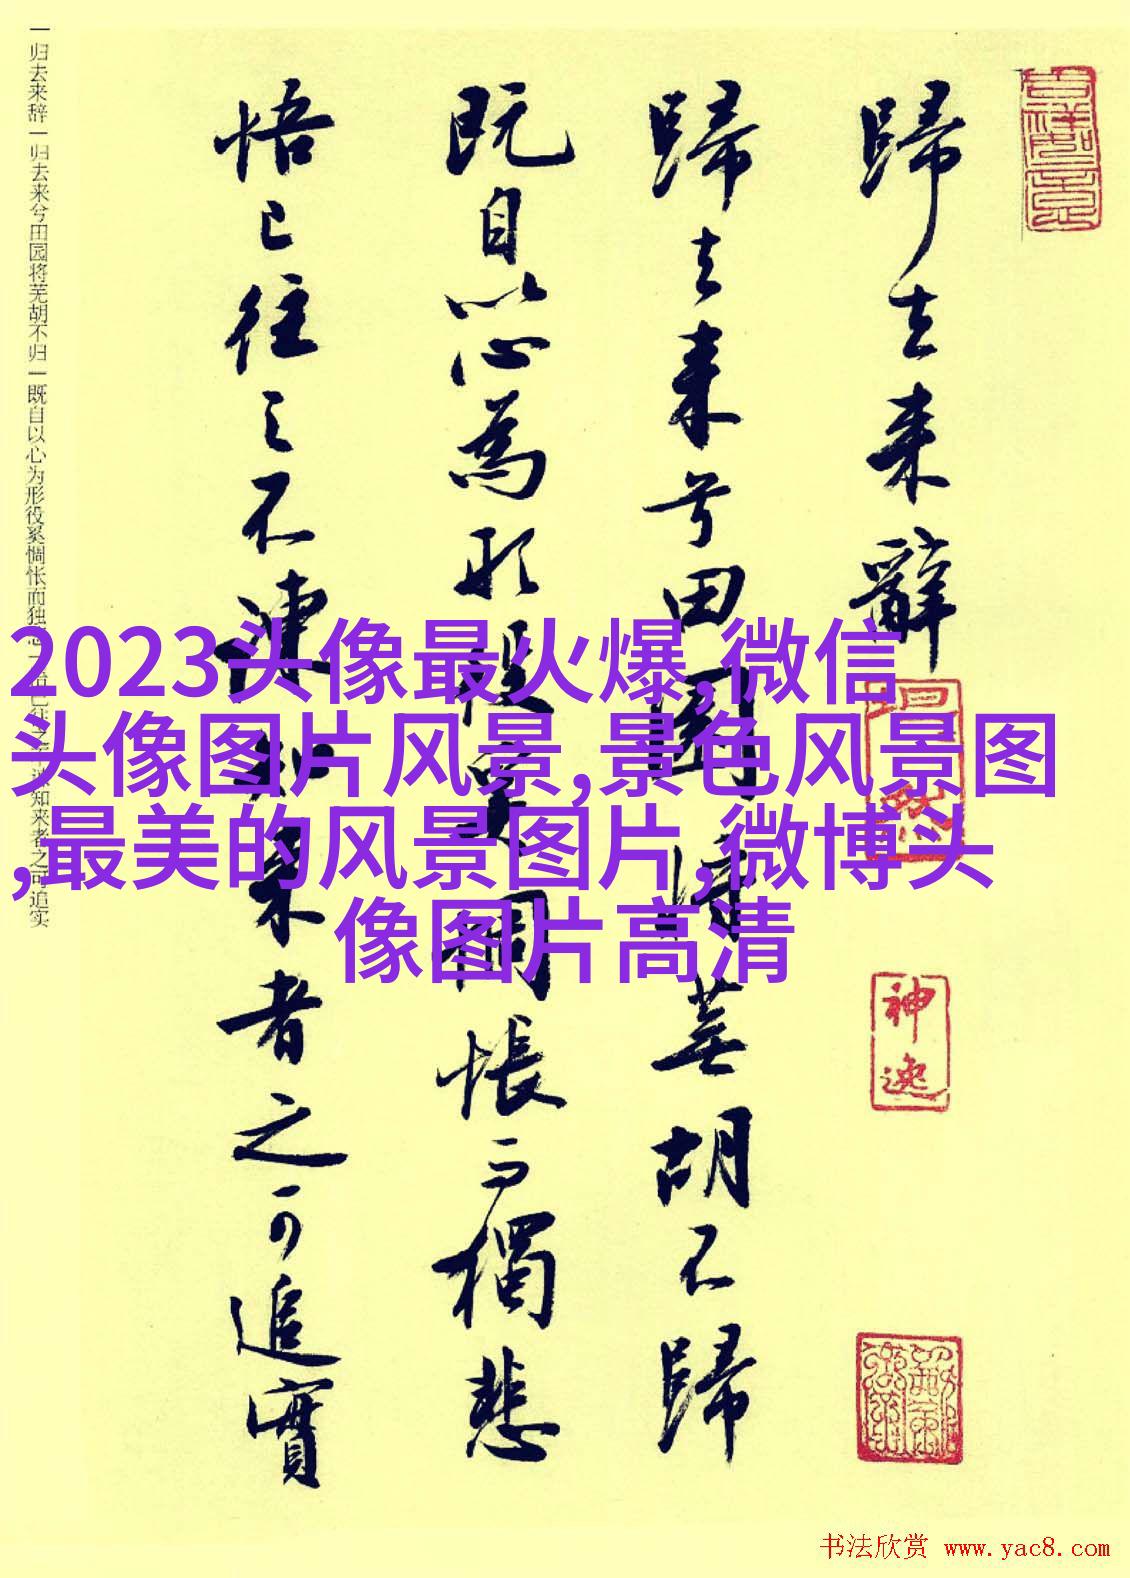 歸去来辭
神逸
歸去来兮田園将蕪胡不歸
既自以心為形役奚惆悵而獨悲
悟已往之不諫知来者之可追實
一归去来辞一归去来兮田园将芜胡不归一既自以心为形役奚惆怅而独悲一悟已往之不谏知来者之可追实
2023头像最火爆,微信
头像图片风景,景色风景图
,最美的风景图片,微博头
像图片高清
书法欣赏 www.yac8.com